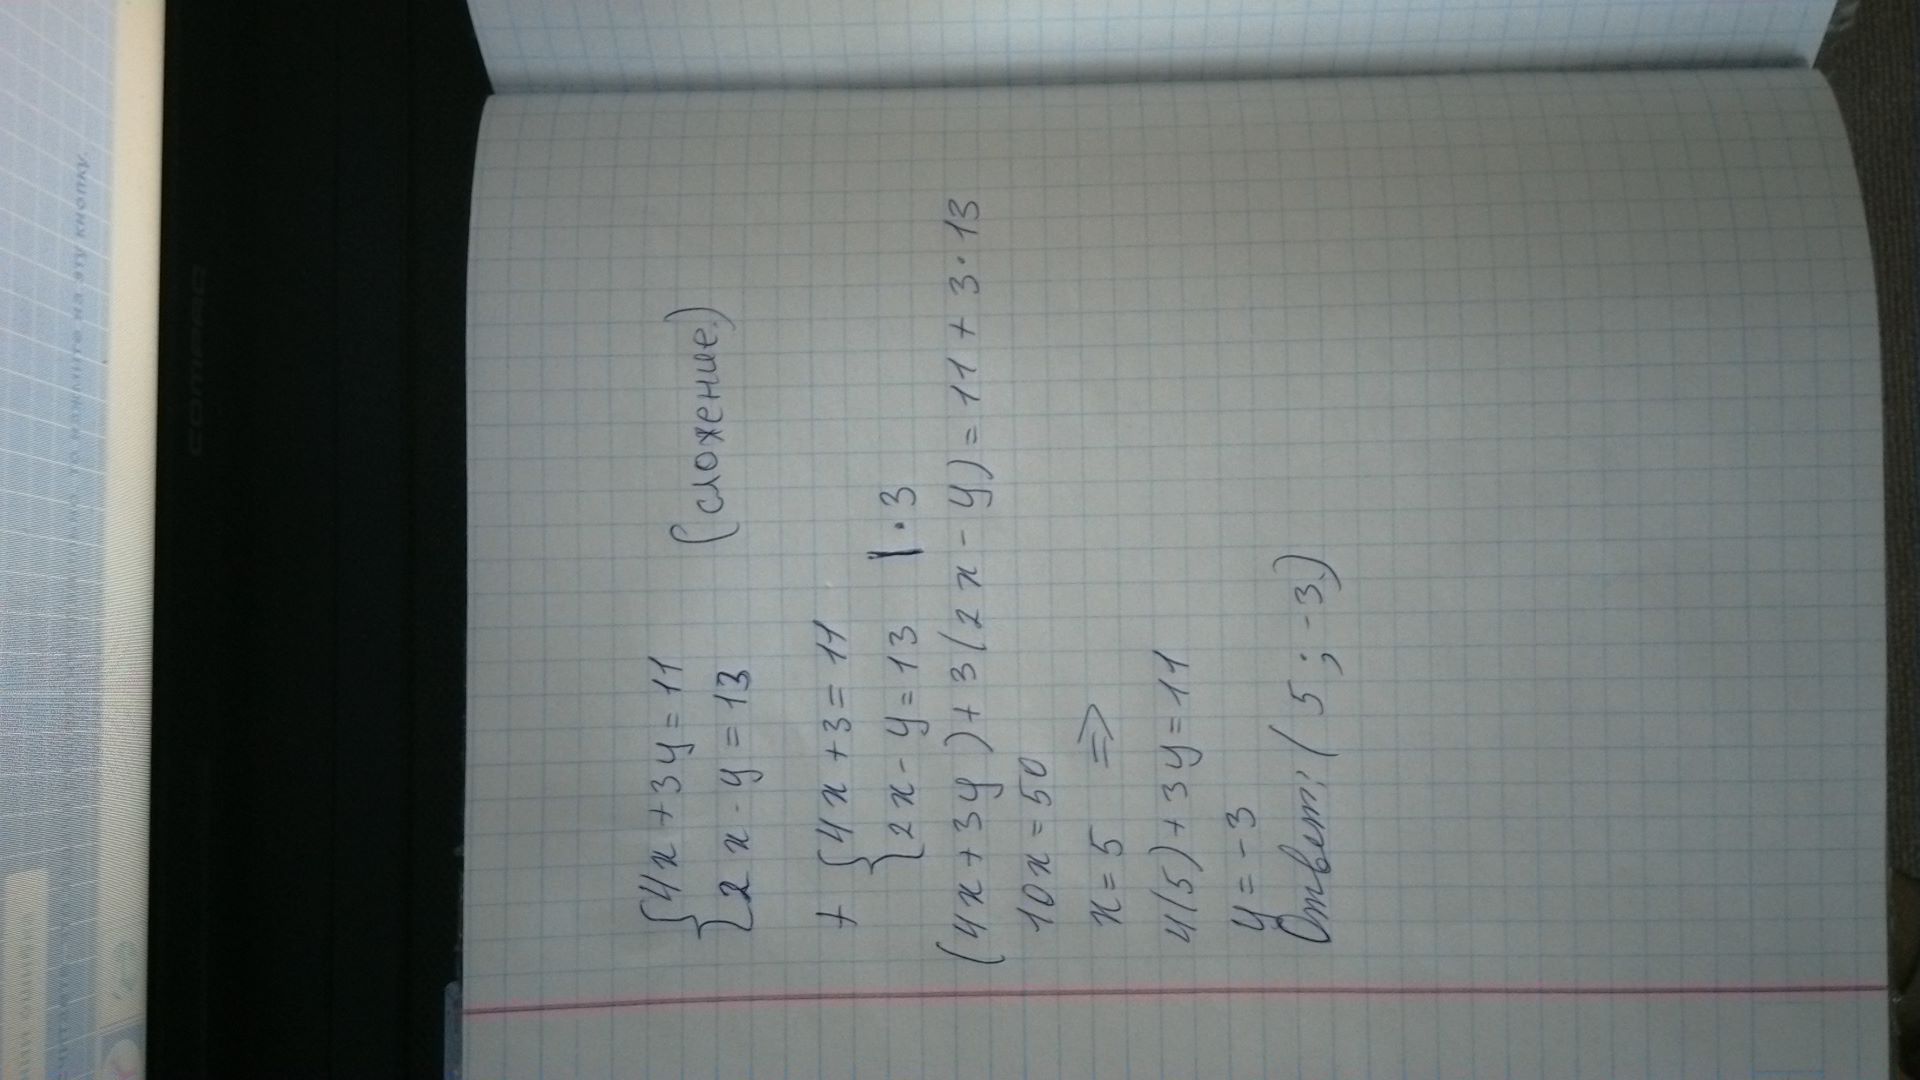 {4x + 3y = 11
{2x - y = 13 (сложение.)
+ {4x + 3 = 11
{2x - y = 13 | · 3
(4x + 3y) + 3(2x - y) = 11 + 3 · 13
10x = 50
x = 5 =>
4(5) + 3y = 11
y = -3
Ответ: (5; -3.)
COMPAQ
нажмите на эту кнопку.